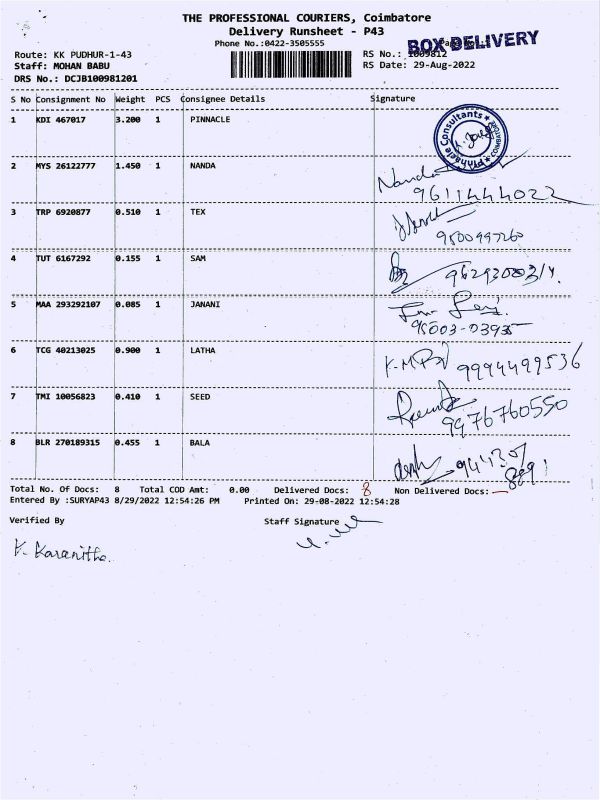 THE PROFESSIONAL COURIERS, Coimbatore
Delivery Runsheet - P43
Phone No.:0422-3505555
BOX DELIVERY
Route: KK PUDHUR-1-43
RS No.: 1009812
Staff: MOHAN BABU
RS Date: 29-Aug-2022
DRS No.: DCJB100981201
S No Consignment No Weight PCS Consignee Details Signature
1 KDI 467017 3.200 1 PINNACLE
Pinnacle Consultants
2 MYS 26122777 1.450 1 NANDA Nanda
9611444022
3 TRP 6920877 0.510 1 TEX
9500997260
4 TUT 6167292 0.155 1 SAM
5 MAA 293292107 0.085 1 JANANI
95003-03935
6 TCG 40213025 0.900 1 LATHA 9994499536
7 TMI 10056823 0.410 1 SEED
9976760550
8 BLR 270189315 0.455 1 BALA
Total No. Of Docs: 8 Total COD Amt: 0.00 Delivered Docs: 8 Non Delivered Docs: —
Entered By :SURYAP43 8/29/2022 12:54:26 PM Printed On: 29-08-2022 12:54:28
Verified By Staff Signature
K. Karanitha